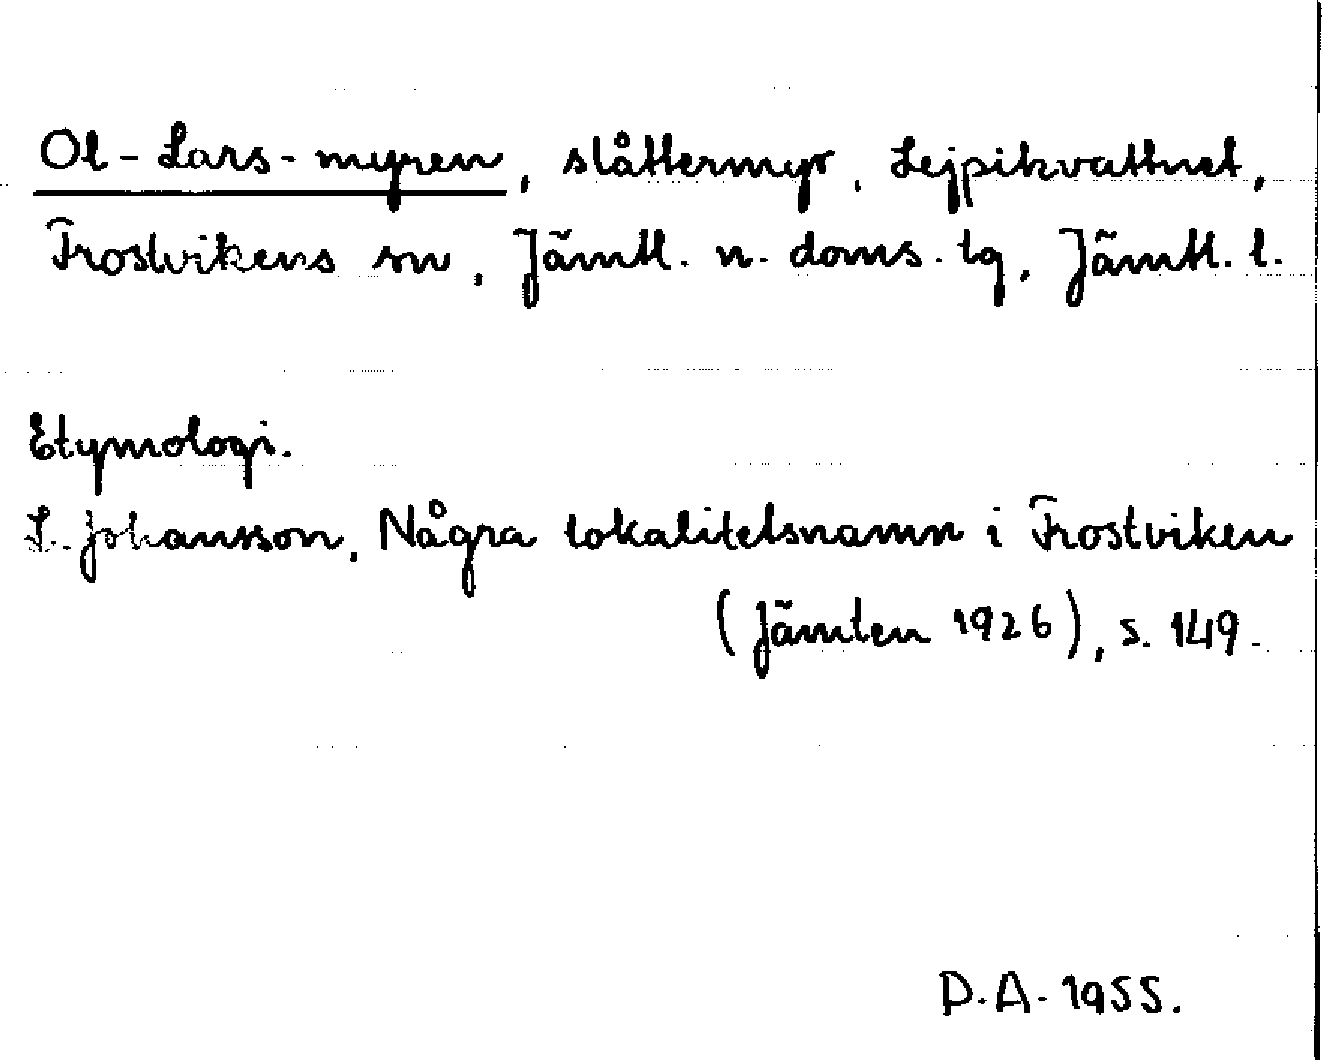 Ol-Lars-myren, slåttermyr, Lejpikvattnet,
Frostvikens sn, Jämtl. n. doms. lg, Jämtl. l.
Etymologi.
L. Johansson, Några lokalitetsnamn i Frostviken
(Jämten 1926), s. 149.
D.A. 1955.